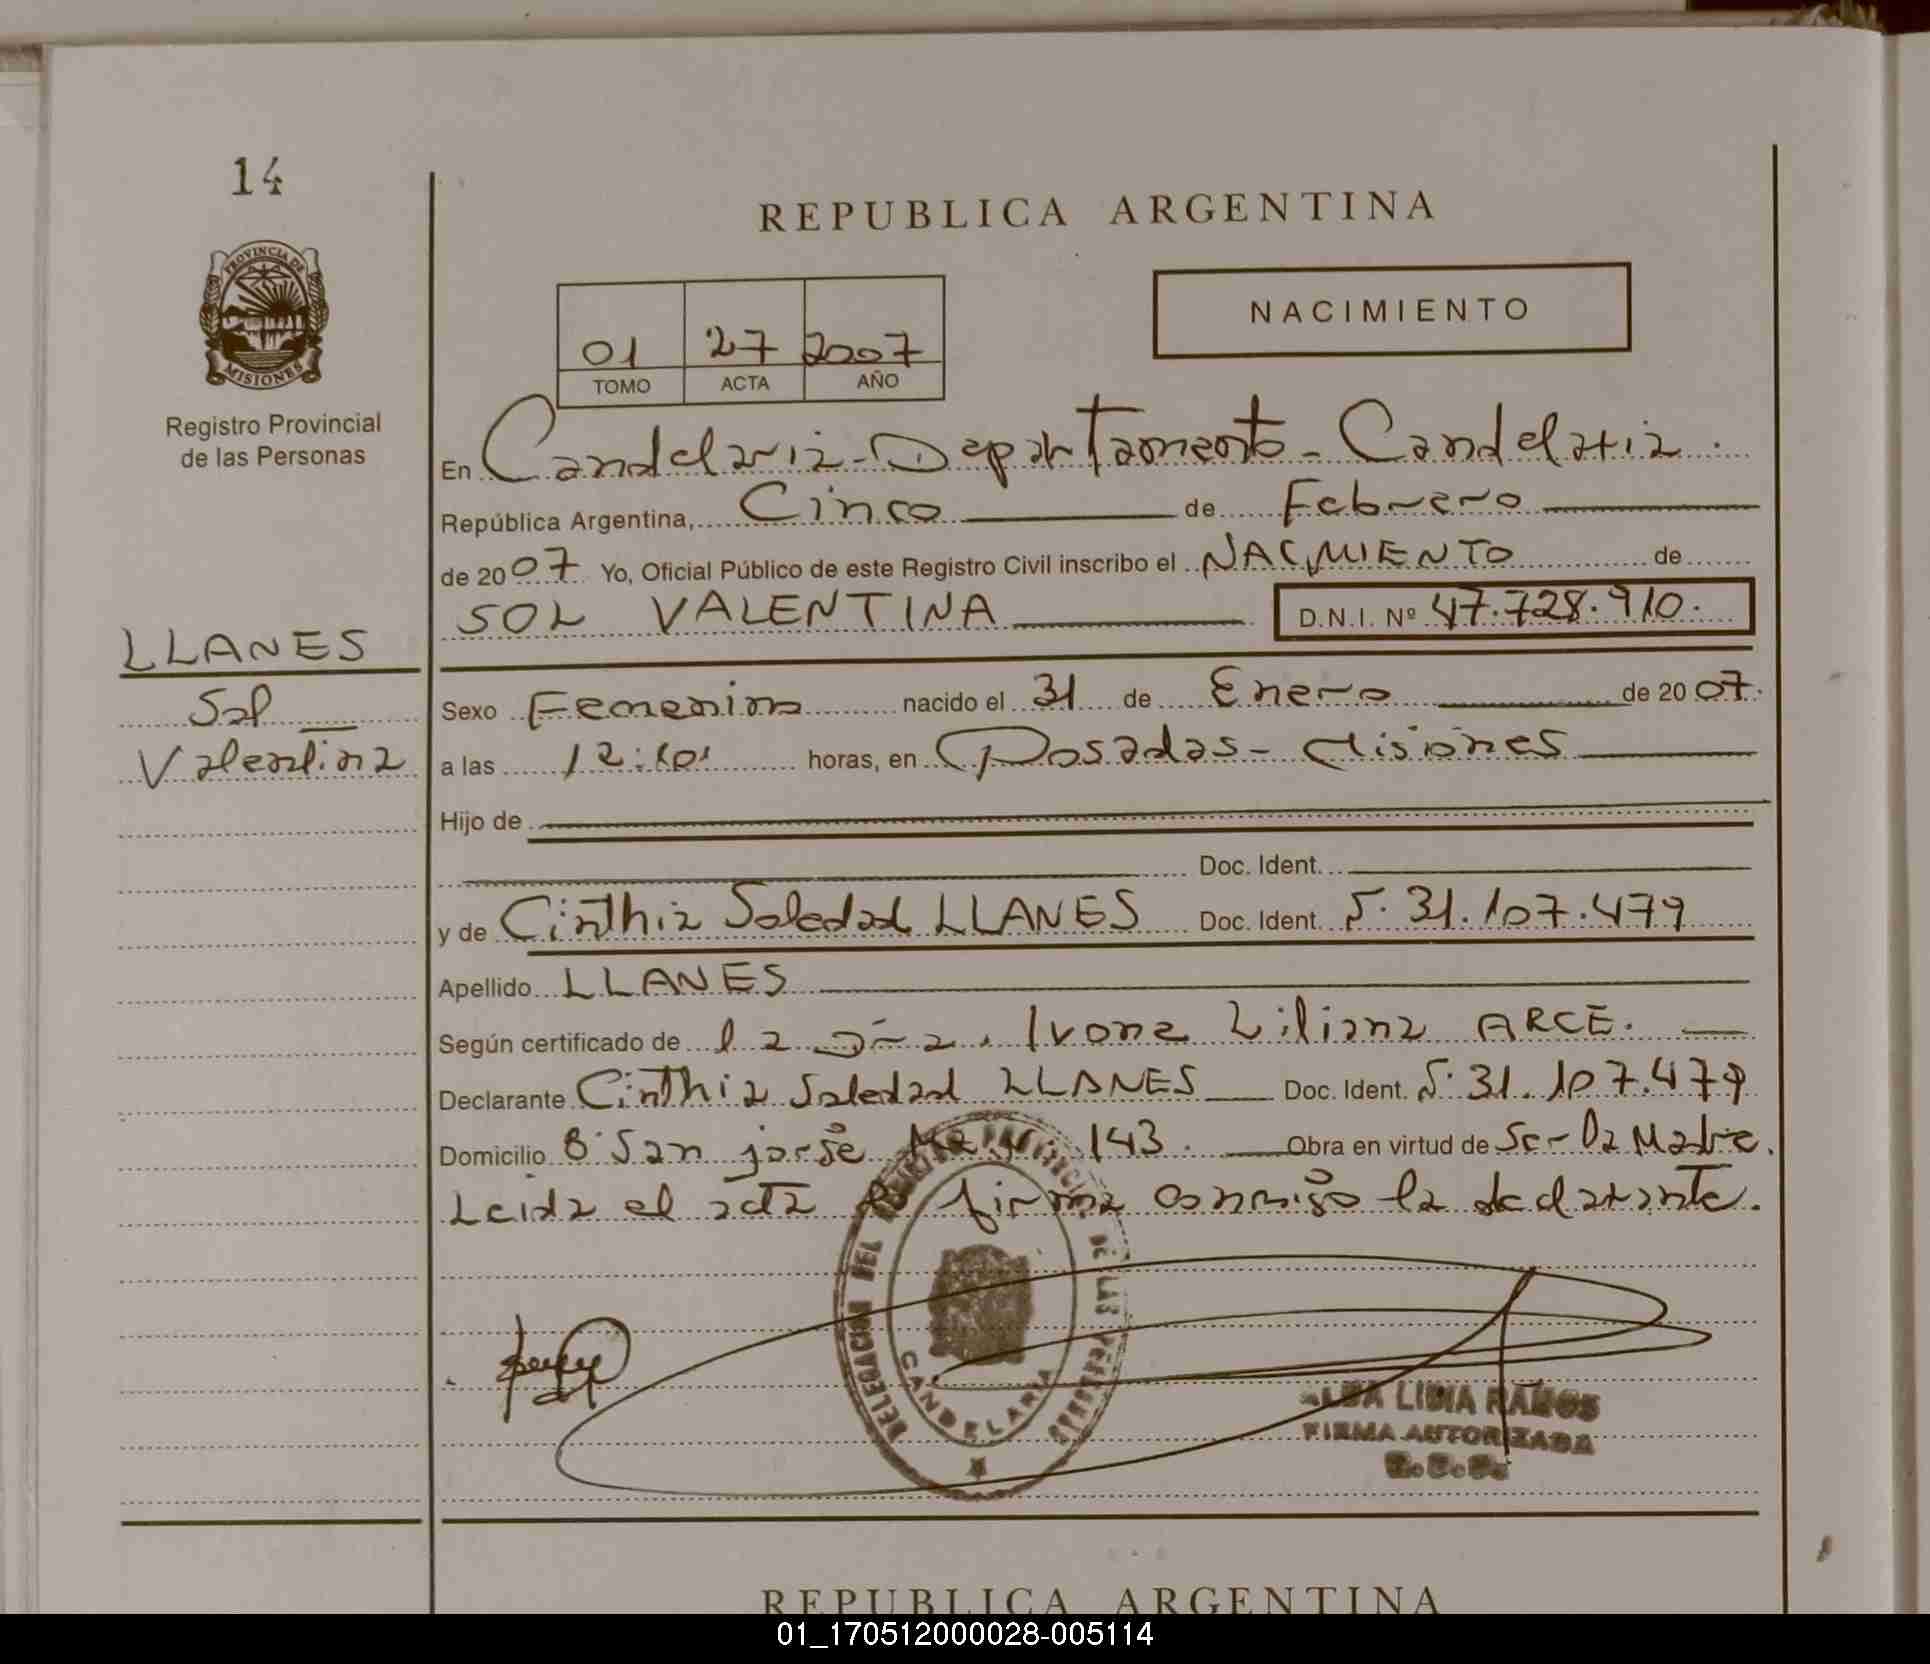 14
REPUBLICA ARGENTINA
PROVINCIA DE
MISIONES
Registro Provincial
de las Personas
01 27 2007
TOMO ACTA AÑO
NACIMIENTO
En Candelaria - Departamento - Candelaria.
República Argentina, Cinco de Febrero
de 2007 Yo, Oficial Público de este Registro Civil inscribo el NACIMIENTO de
SOL VALENTINA D.N.I. Nº 47.728.910.
LLANES
Sol
Valentina
Sexo Femenino nacido el 31 de Enero de 2007.
a las 12:10 horas, en Posadas - Misiones
Hijo de
Doc. Ident.
y de Cinthia Soledad LLANES Doc. Ident. 31.107.479
Apellido LLANES
Según certificado de la Dra. Ivone Liliana ARCE.
Declarante Cinthia Soledad LLANES Doc. Ident. 31.107.479
Domicilio Bº San jorge 143. Obra en virtud de Ser la Madre.
Leida el acta la firma conmigo la declarante.
DELEGACION DEL DE LAS PERSONAS
CANDELARIA
ALBA LIDIA RAMOS
FIRMA AUTORIZADA
REPUBLICA ARGENTINA
01_170512000028-005114